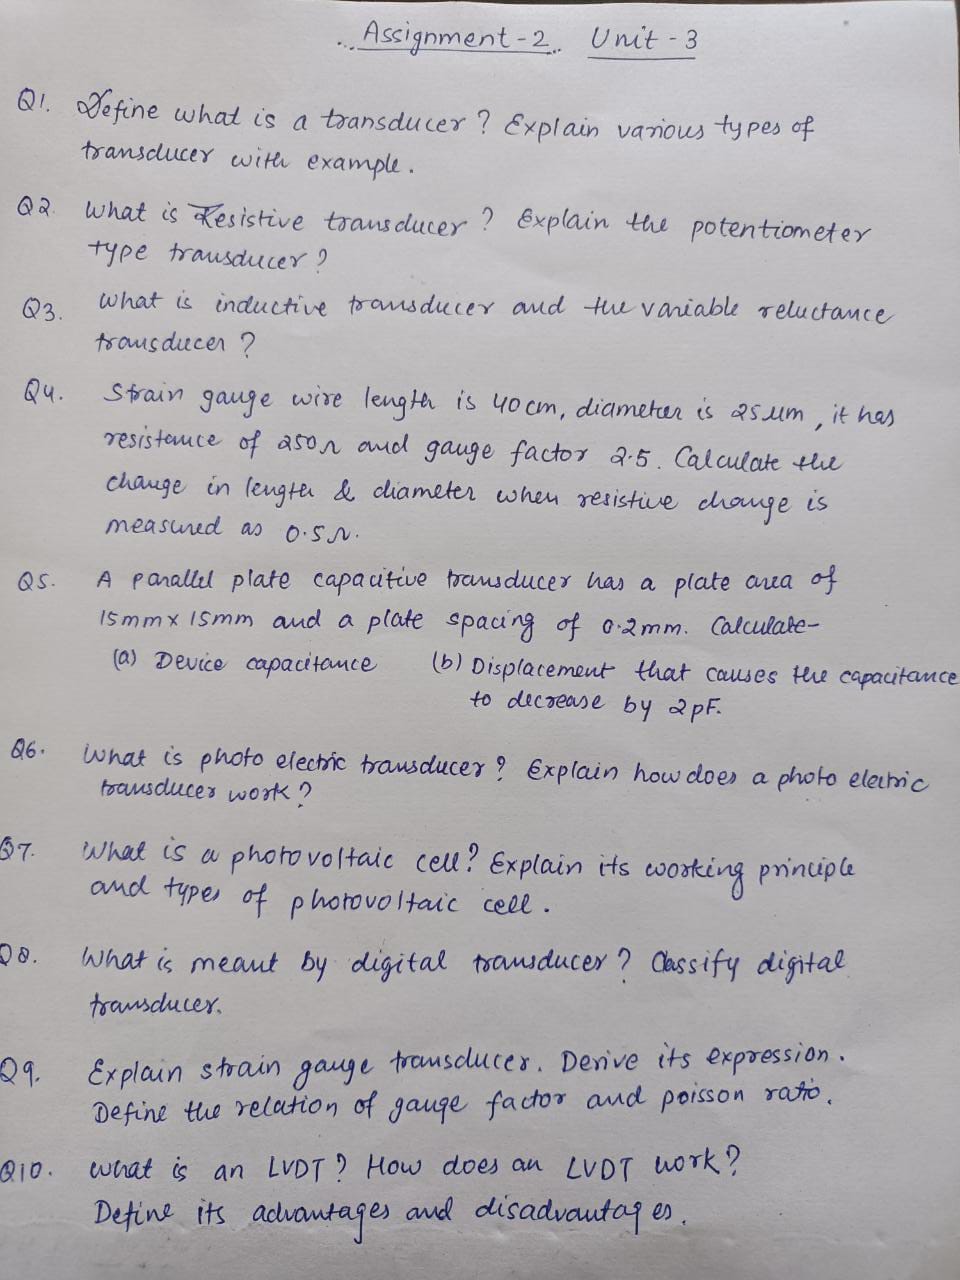 Assignment-2 Unit-3
Q1. Define what is a transducer? Explain various types of
transducer with example.
Q2. What is Resistive transducer? Explain the potentiometer
type transducer?
Q3. What is inductive transducer and the variable reluctance
transducer?
Q4. Strain gauge wire length is 40cm, diameter is 25µm, it has
resistance of 250Ω and gauge factor 2.5. Calculate the
change in length & diameter when resistive change is
measured as 0.5Ω.
Q5. A parallel plate capacitive transducer has a plate area of
15mm x 15mm and a plate spacing of 0.2mm. Calculate-
(a) Device capacitance (b) Displacement that causes the capacitance
to decrease by 2pF.
Q6. What is photo electric transducer? Explain how does a photo electric
transducer work?
Q7. What is a photovoltaic cell? Explain its working principle
and types of photovoltaic cell.
Q8. What is meant by digital transducer? Classify digital
transducer.
Q9. Explain strain gauge transducer. Derive its expression.
Define the relation of gauge factor and poisson ratio.
Q10. What is an LVDT? How does an LVDT work?
Define its advantages and disadvantages.